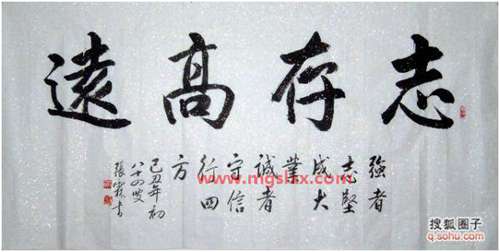 志存高遠
強者
志堅
成大
業
誠者
守信
行四
方
己丑年初
八十四叟
張霖書
搜狐圈子
q.sohu.com